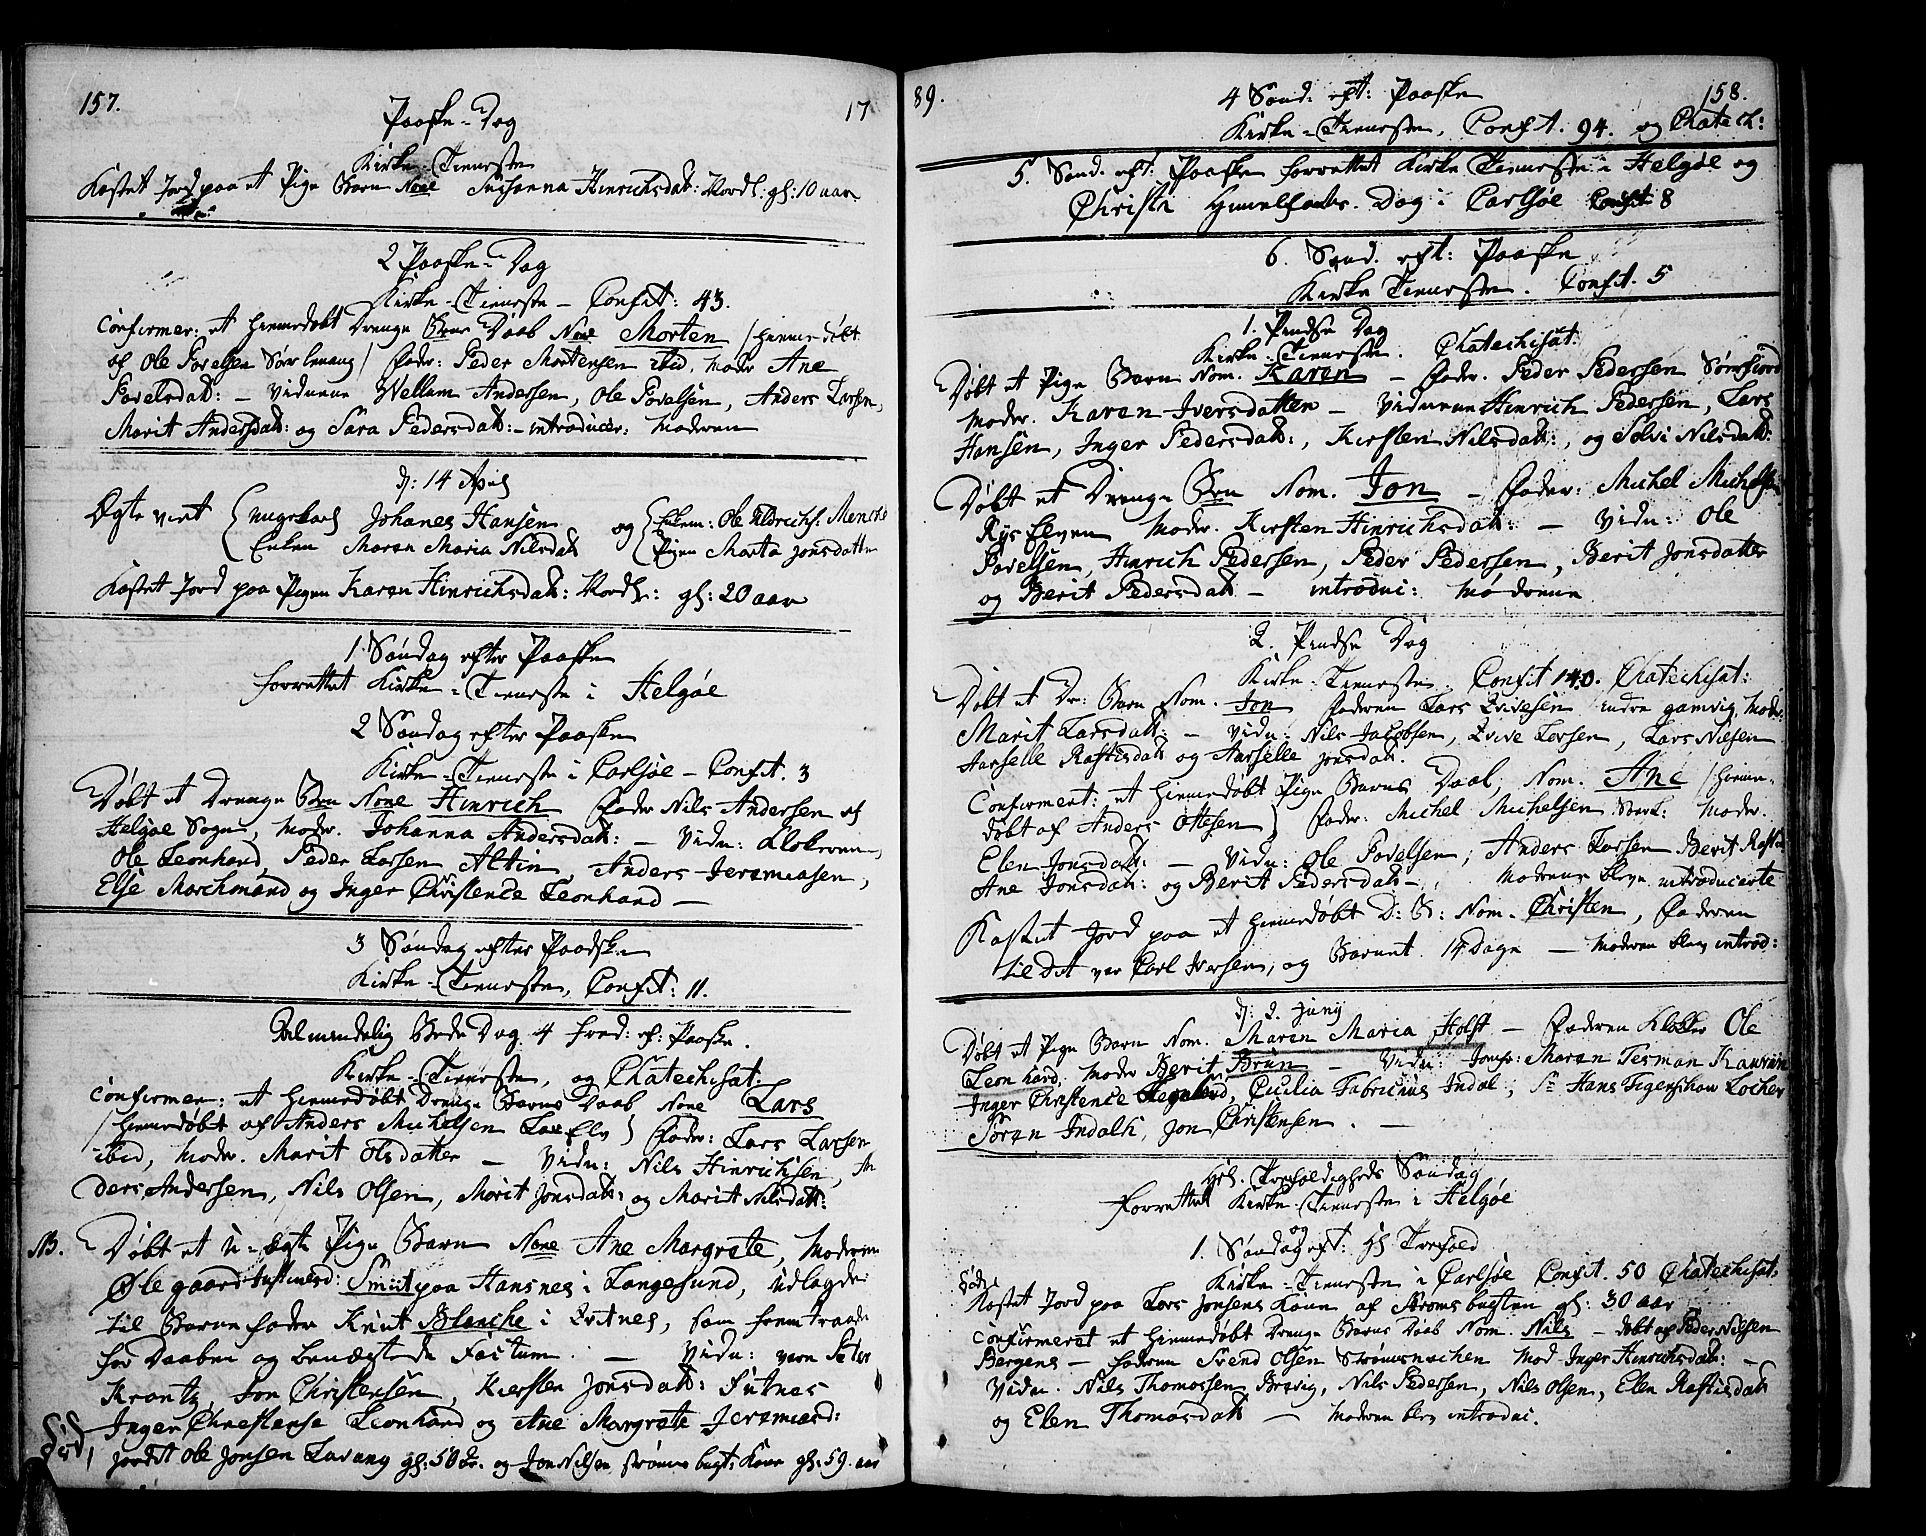 157.
17
Paaske-Dag
Kirke-Tieneste
Kastet Jord paa et Pige Barn None Susanna Hinrichsdat: Nords: gl: 10 aar
2 Paaske-Dag
Kirke-Tieneste - Confit: 43.
Confirmer: et hiemedøbt Drenge Barns Daab None Morten /hiemedøbt
af Ole Povelsen Sørlenang/ Fader: Peder Mortensen ibid, Moder Ane
Povelsdat: - Vidnene Wellum Andersen, Ole Povelsen, Anders Larsen,
Marit Andersdat: og Sara Pedersdat: - introducer: Moderen
d: 14 April
Ægte viet { Ungekarl Johanes Hansen og { Enkem: Ole Uldrichs. Mencke
Enken Maren Maria Nilsdat { Pigen Marta Jonsdatter
Kastet Jord paa Pigen Karen Hinrichsdat: Nords: gl: 20 aar
1 Søndag efter Paaske
forrettet Kirke-Tieneste i Helgøe
2 Søndag efter Paaske
Kirke-Tieneste i Carlsøe - Confit. 3
Døbt et Drenge Barn None Hinrich Fader Nils Andersen af
Helgøe Sogn, Moder. Johanna Andersdat: - Vidn: Klokeren
Ole Leonhard, Peder Larsen Altin, Anders Jeremiasen,
Else Marchmand og Inger Christence Leonhard -
3 Søndag efter Paaske
Kirke-Tieneste, Confit: 11.
Almindelig Bede Dag 4 fred: ef: Paaske.
Kirke-Tieneste, og Chatechisat.
Confirmer: et hiemedøbt Drenge Barns Daab None Lars
/hiemedøbt af Anders Michelsen LaxElv/ Fader: Lars Larsen
ibid, Moder. Marit Olsdatter - Vidn: Nils Hinrichsen, An
ders Andersen, Nils Olsen, Marit Jonsdat: og Marit Nilsdatt:
NB. Døbt et U-ægte Pige Barn None Ane Margrete, Moderen
Ølegaard Smiit paa Hansnes i Langesund, udlagde
til Barne fader Knut Blanche i Evitnes, som fremtraade
for Daaben og benægtede Factum. - Vidn: vare Peder
Krantz, Jon Christensen, Kiersten Jonsdat: Futnes
Inger Christense Leonhard og Ane Margrete Jeremiasd:
jordet Ole Jonsen Lavang gl: 50 Ar. og Jon Nilsen Strømsbugt: Kone gl: 59. aar
89.
158.
4 Sønd: eft: Paaske
Kirke-Tieneste, Confit. 94. og Chatech:
5. Sønd. eft: Paaske forrettet Kirke Tieneste i Helgøe og
Christi Himmelfarts. Dag i Carlsøe Confit 8
6. Sønd. eft: Paaske
Kirke Tieneste. Confit. 5
1. Pindse Dag
Kirke-Tieneste. Chatechisat:
Døbt et Pige Barn Nom. Karen - Fader. Peder Pedersen Sørfiord
Moder. Karen Iversdatter - Vidnene Hinrich Pedersen, Lars
Hansen, Inger Pedersdat:, Kirsten Nilsdat:, og Solvi Nilsdat:
Døbt et Drenge Barn Nom. Jon - Fader: Michel Michelsen
Rys Elven Moder. Kirsten Hinrichsdat: - Vidn: Ole
Povelsen, Hinrich Pedersen, Peder Pedersen, Berit Jonsdatter
og Berit Pedersdat - introdui: Mødrene
2. Pindse Dag
Kirke-Tieneste. Confit 140. Chatechisat:
Døbt et Dr: Barn Nom. Jon Faderen Lars Evivesen indre gamvig, Moder:
Marit Larsdat: - Vidn: Nils Jacobsen, Evive Larsen, Lars Nilsen
Aarselle Rastisdat og Aarselle Jonsdat.
Confirment: et hiemedøbt Pige Barns Daab, Nom. Ane /hieme-
døbt af Anders Ottesen/ Fader: Michel Michelsen Moder.
Elen Jonsdat: - Vidn: Ole Povelsen, Anders Larsen Berit
Ane Jonsdat: og Berit Pedersdat - Moderne bleve introducerte
Kastet Jord paa et hiemedøbt D: B: Nom. Christen, Faderen
til det var Carl Iversen, og Barnet 14 Dage - Moderen blev introd:
d: 2. Junij
Døbt et Pige Barn Nom. Maren Maria Holst - Faderen Klokker Ole
Leonhard. Moder Berit Brun - Vidn: Jomfr: Maren Tesman
Inger Christence, Cicilia Fabricius Indal, Sr Hans Figenschau Locker
Søren Indahl, Jon Christensen. -
Hel. Trefoldigheds Søndag
Forrettet Kirke-Tieneste i Helgøe
og
1. Søndag eft: Hl Trefold
Kirke-Tieneste i Carlsøe Confit. 50 Chatechisat.
Kastet Jord paa Lars Jonsens Kone af Strømsbugten gl: 30 aar
Confirmeret et hiemedøbt Drenge Barns Daab Nom. Nils - døbt af Peder Nilsen
Bergens - faderen Svend Olsen Mod Inger Hinrichsdat: -
Vidn. Nils Thomassen Brevig, Nils Pedersen, Nils Olsen, Elen Rastisdat
og Elen Thomasdat - Moderen blev introdui.